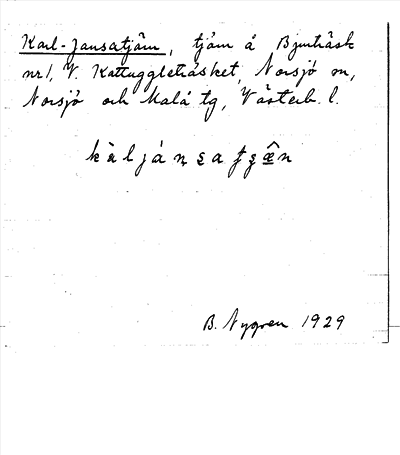 Karl-Jansatjärn, tjärn å Bjurträsk
nr 1, V. Kattuggleträsket, Norsjö sn,
Norsjö och Malå tg, Västerb. l.
B. Nygren 1929